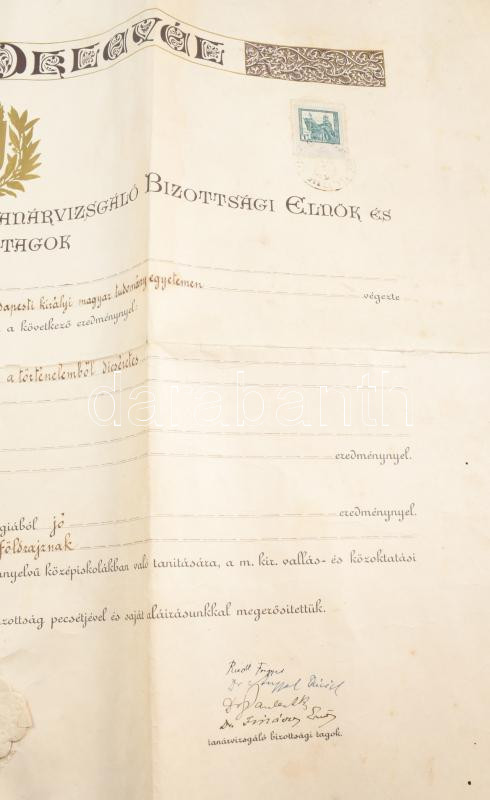 OKLEVÉL
TANÁRVIZSGÁLÓ BIZOTTSÁGI ELNÖK ÉS
TAGOK
dapesti királyi magyar tudomány egyetemen végezte
a következő eredménynyel:
a történelemből dicséretes
darabanth
eredménynyel.
giából jó eredménynyel.
földrajznak
nyelvű középiskolákban való tanitására, a m. kir. vallás- és közoktatási
zottság pecsétjével és saját aláirásunkkal megerősitettük.
Dr
Dr
Dr
tanárvizsgáló bizottsági tagok.